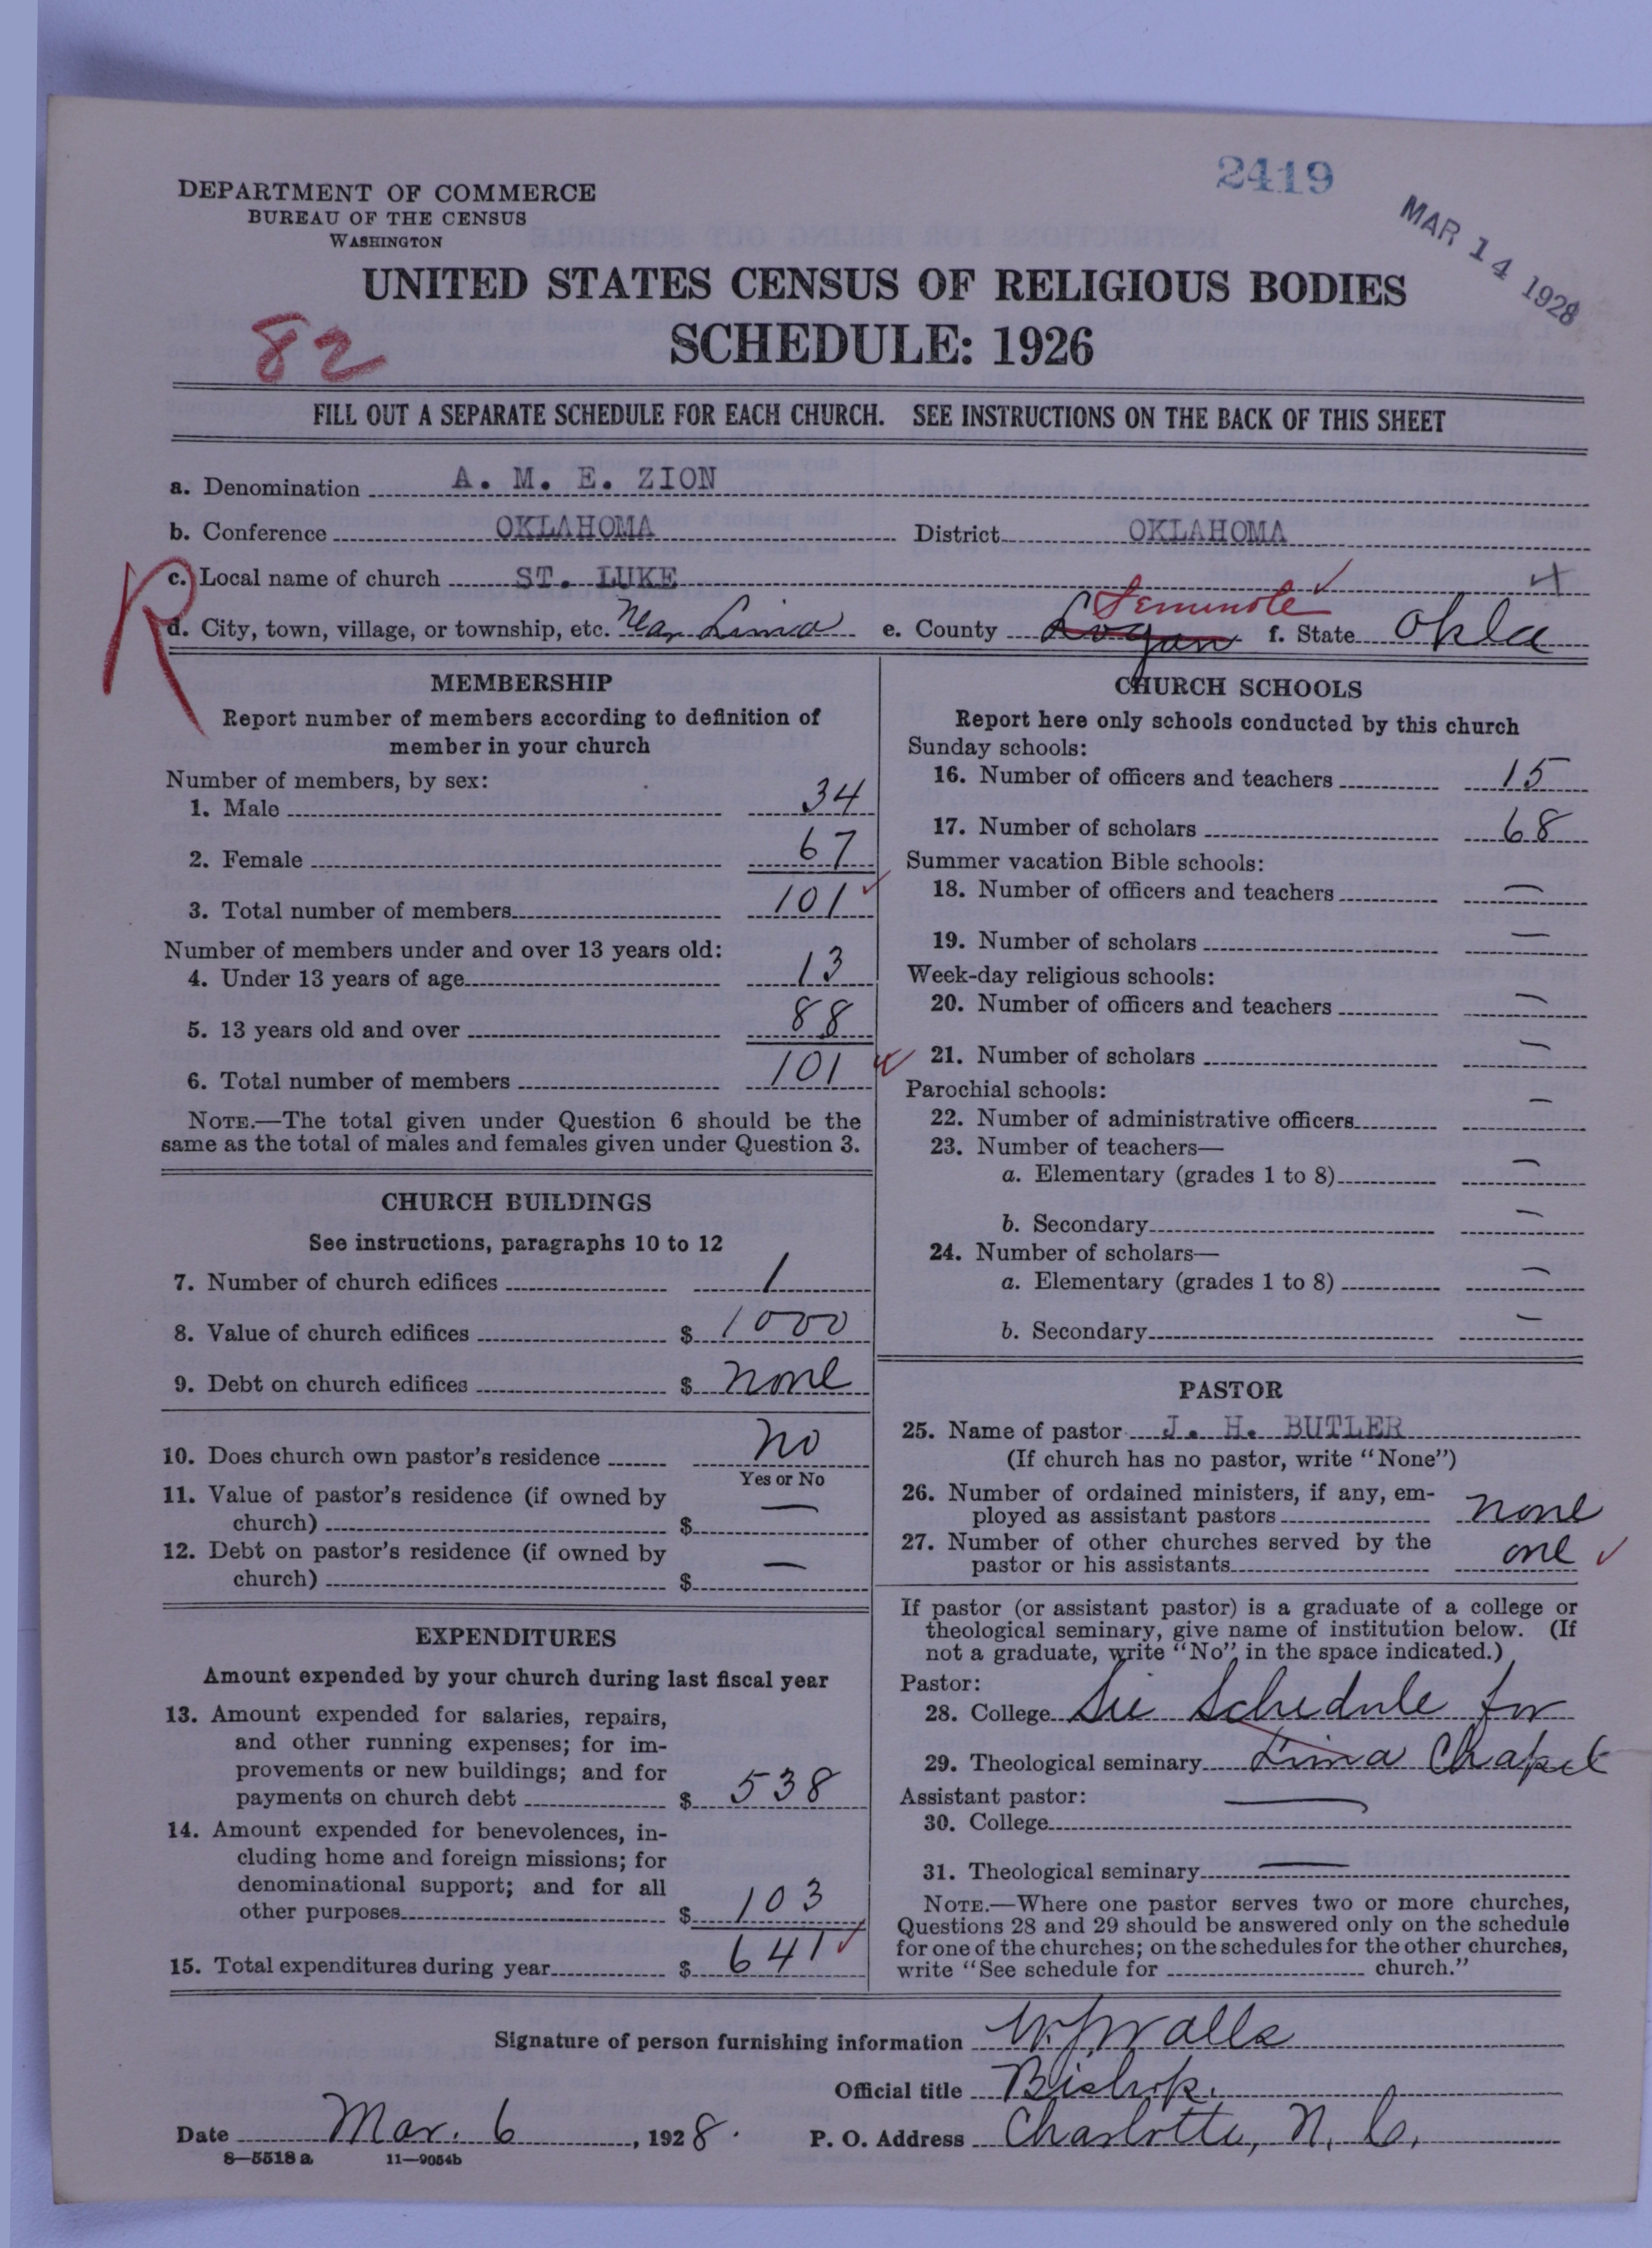 2419
MAR 14 1928
DEPARTMENT OF COMMERCE
BUREAU OF THE CENSUS
WASHINGTON
UNITED STATES CENSUS OF RELIGIOUS BODIES
SCHEDULE: 1926
82
FILL OUT A SEPARATE SCHEDULE FOR EACH CHURCH. SEE INSTRUCTIONS ON THE BACK OF THIS SHEET
a. Denomination A. M. E. ZION
b. Conference OKLAHOMA District OKLAHOMA
R
c. Local name of church ST. LUKE
d. City, town, village, or township, etc. Near Lima e. County Logan Seminole f. State Okla
MEMBERSHIP
Report number of members according to definition of
member in your church
Number of members, by sex:
1. Male 34
2. Female 67
3. Total number of members 101
Number of members under and over 13 years old:
4. Under 13 years of age 13
5. 13 years old and over 88
6. Total number of members 101
NOTE.—The total given under Question 6 should be the
same as the total of males and females given under Question 3.
CHURCH BUILDINGS
See instructions, paragraphs 10 to 12
7. Number of church edifices 1
8. Value of church edifices $ 1000
9. Debt on church edifices $ none
10. Does church own pastor's residence no
Yes or No
11. Value of pastor's residence (if owned by
church) $ —
12. Debt on pastor's residence (if owned by
church) $ —
EXPENDITURES
Amount expended by your church during last fiscal year
13. Amount expended for salaries, repairs,
and other running expenses; for im-
provements or new buildings; and for
payments on church debt $ 538
14. Amount expended for benevolences, in-
cluding home and foreign missions; for
denominational support; and for all
other purposes $ 103
15. Total expenditures during year $ 641
CHURCH SCHOOLS
Report here only schools conducted by this church
Sunday schools:
16. Number of officers and teachers 15
17. Number of scholars 68
Summer vacation Bible schools:
18. Number of officers and teachers —
19. Number of scholars —
Week-day religious schools:
20. Number of officers and teachers —
21. Number of scholars —
Parochial schools:
22. Number of administrative officers —
23. Number of teachers—
a. Elementary (grades 1 to 8) —
b. Secondary —
24. Number of scholars—
a. Elementary (grades 1 to 8) —
b. Secondary —
PASTOR
25. Name of pastor J. H. BUTLER
(If church has no pastor, write "None")
26. Number of ordained ministers, if any, em-
ployed as assistant pastors none
27. Number of other churches served by the
pastor or his assistants one
If pastor (or assistant pastor) is a graduate of a college or
theological seminary, give name of institution below. (If
not a graduate, write "No" in the space indicated.)
Pastor:
28. College See Schedule for
29. Theological seminary Lima Chapel
Assistant pastor:
30. College —
31. Theological seminary —
NOTE.—Where one pastor serves two or more churches,
Questions 28 and 29 should be answered only on the schedule
for one of the churches; on the schedules for the other churches,
write "See schedule for church."
Signature of person furnishing information W. J. Walls
Official title Bishop.
Date Mar. 6, 1928. P. O. Address Charlotte, N. C.
8—5518 a 11—9054b